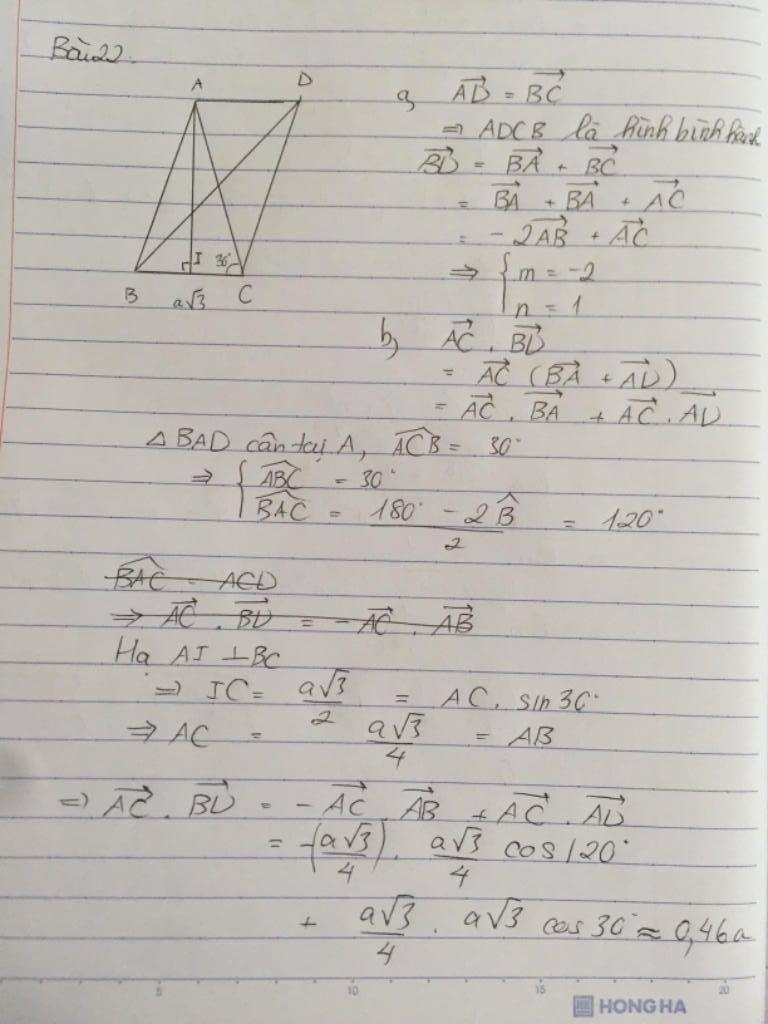 Bài 22.
A D
B I 30° C
a√3
a, $\overrightarrow{AD} = \overrightarrow{BC}$
⇒ ADCB là hình bình hành
$\overrightarrow{BD} = \overrightarrow{BA} + \overrightarrow{BC}$
$= \overrightarrow{BA} + \overrightarrow{BA} + \overrightarrow{AC}$
$= -2\overrightarrow{AB} + \overrightarrow{AC}$
⇒ { m = -2
n = 1
b, $\overrightarrow{AC} . \overrightarrow{BD}$
$= \overrightarrow{AC} (\overrightarrow{BA} + \overrightarrow{AD})$
$= \overrightarrow{AC} . \overrightarrow{BA} + \overrightarrow{AC} . \overrightarrow{AD}$
△ BAD cân tại A, $\widehat{ACB}$ = 30°
⇒ { $\widehat{ABC}$ = 30°
$\widehat{BAC} = \frac{180° - 2\widehat{B}}{2} = 120°$
~~$\widehat{BAC}$ - ACD~~
~~⇒ $\overrightarrow{AC} . \overrightarrow{BD} = -\overrightarrow{AC} . \overrightarrow{AB}$~~
Hạ AI ⊥ BC
⇒ IC = $\frac{a\sqrt{3}}{2}$ = AC. sin 30°
⇒ AC = $\frac{a\sqrt{3}}{4}$ = AB
⇒ $\overrightarrow{AC} . \overrightarrow{BD} = -\overrightarrow{AC} . \overrightarrow{AB} + \overrightarrow{AC} . \overrightarrow{AD}$
$= -\left(\frac{a\sqrt{3}}{4}\right) . \frac{a\sqrt{3}}{4} \cos 120°$
$+ \frac{a\sqrt{3}}{4} . a\sqrt{3} \cos 30° ≈ 0,46a$
5 10 15 20
HONG HA